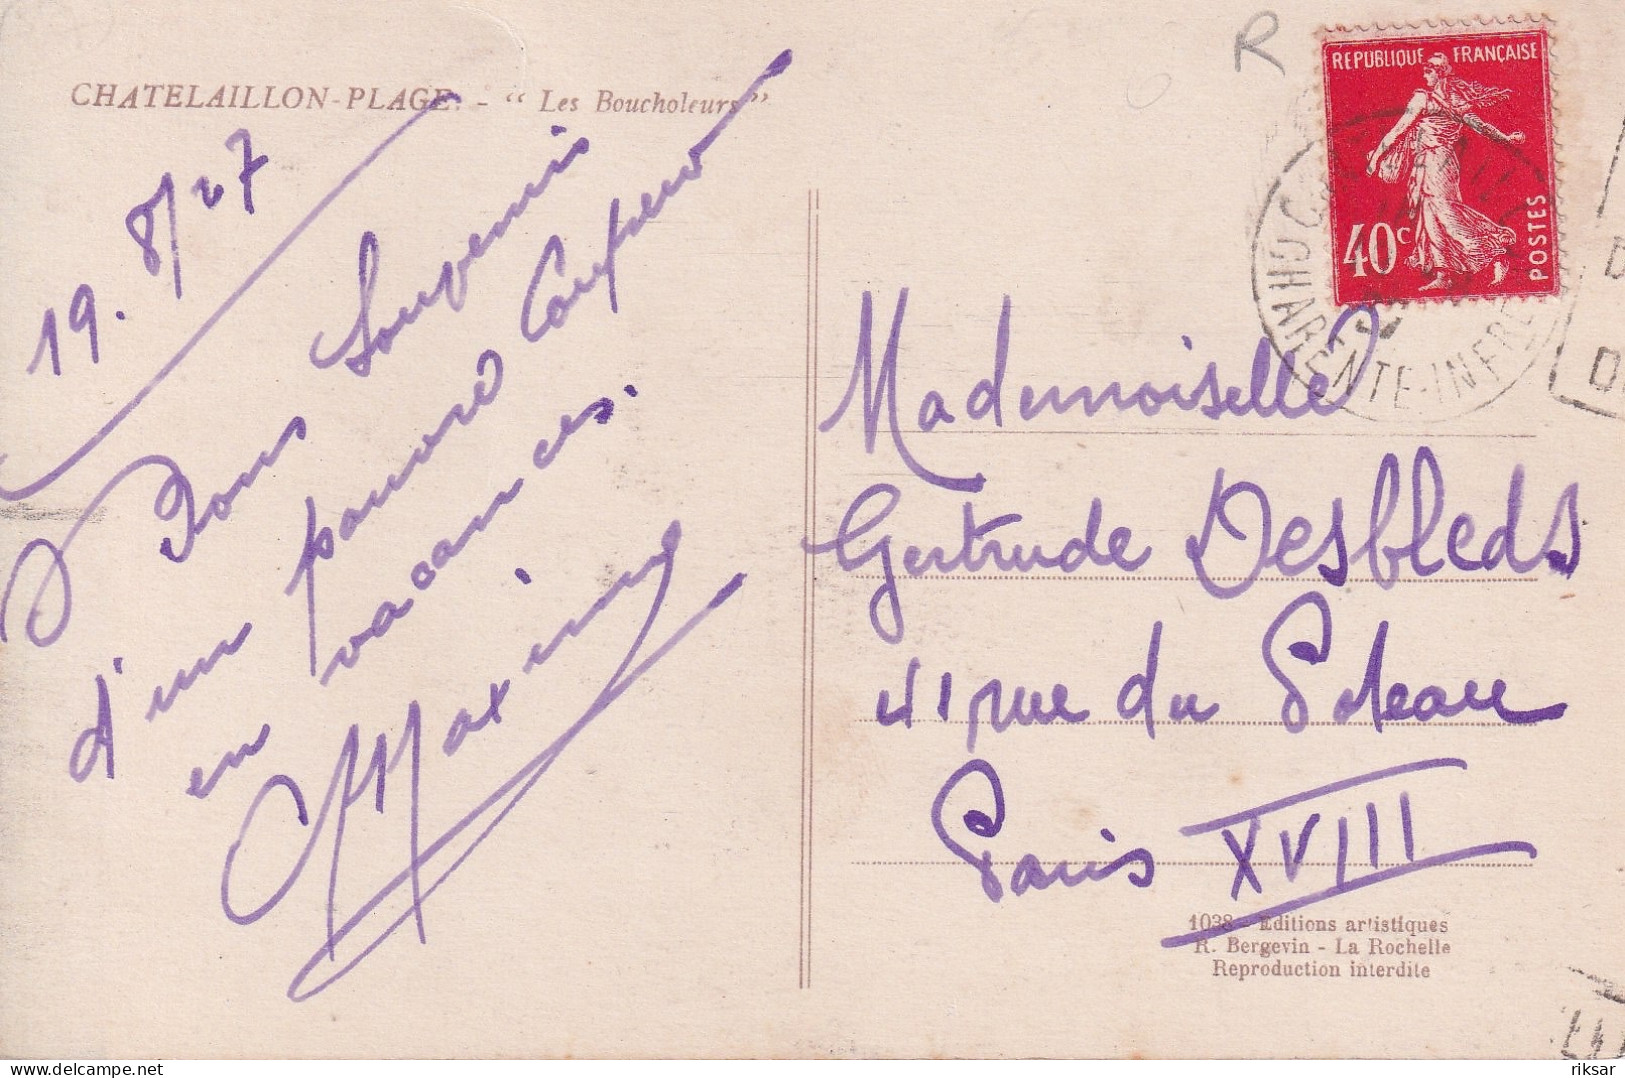 CHATELAILLON-PLAGE. - “ Les Boucholeurs ”
19. 8/27
Bons Souvenirs
d'un pauvre
en vacances.
Maxime
R
REPUBLIQUE FRANÇAISE
40c
POSTES
CHARENTE-INFRE
Mademoiselle
Gertrude Desbleds
41 rue du Poteau
Paris XVIII
1038 - Editions artistiques
R. Bergevin - La Rochelle
Reproduction interdite
riksar